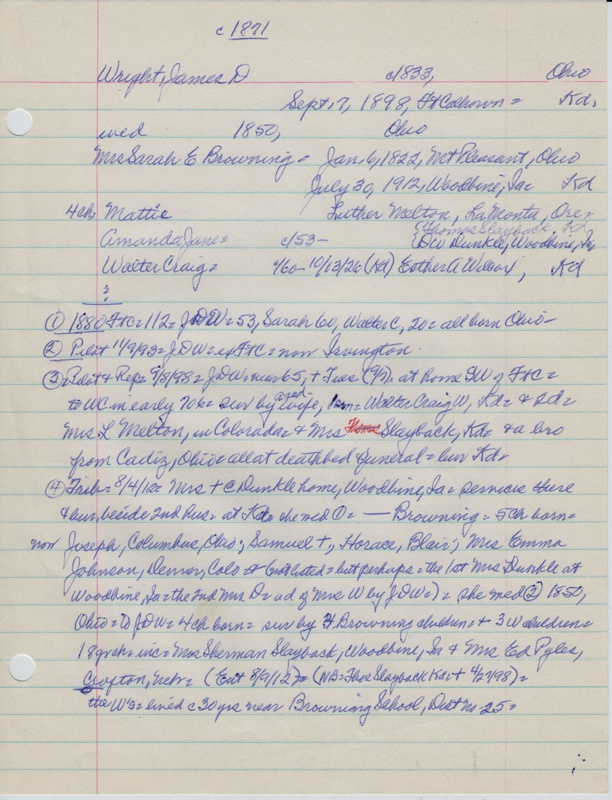 c 1871
Wright, James D c/1833, Ohio
Sept. 7, 1898, Ft Calhoun = Kd,
wed 1850, Ohio
Mrs Sarah E Browning = Jan. 6, 1822, Mt Pleasant, Ohio
July 30, 1912, Woodbine, Ia = Kd
4 ch. Mattie Luther Melton, LaMonta, Ore =
Amanda Jane = c/53 - Thomas Slayback, Kd
D W Dunkle, Woodbine, Ia
Walter Craig = 4/60 - 10/13/26 (Kd) Esther A Wilcox, Kd
?
① 1880 FtC = 112 = J D W = 53, Sarah 60, Walter C, 20 = all born Ohio -
② Pilot 11/9/93 = J D W = ex FtC = now Irvington.
③ = Pilot & Rep = 9/8/98 = J D W = near 65, + Tues (9/7) at home SW of FtC =
to WC in early 70s = sur by aged wife, 1 son = Walter Craig W, Kd = & 2 d =
Mrs L Melton, in Colorado = & Mrs Slayback, Kd = & a bro
from Cadiz, Ohio = all at deathbed & funeral = bur Kd =
④ Trib = 8/4/12 = Mrs + C Dunkle home, Woodbine, Ia = services there
& bur, beside 2nd hus = at Kd = she med ① = — Browning = 5 ch born =
now Joseph, Columbus, Ohio; Samuel +, Horace, Blair; Mrs Emma
Johnson, Denver, Colo = & (not listed = but perhaps = the 1st Mrs Dunkle at
Woodbine, Ia = the 2nd Mrs D = a d of Mrs W by J D W =) = she med ② 1850,
Ohio = to J D W = 4 ch born = sur by 4 Browning children = + 3 W children =
18 grch = inc = Mrs Sherman Slayback, Woodbine, Ia & Mrs Ed Pyles,
Crofton, Nebr = (Ent 8/9/12) = (NB = Thos Slayback Kd = + 4/27/98) =
the W's = lived c 30 yrs near Browning School, Dist No 25 =